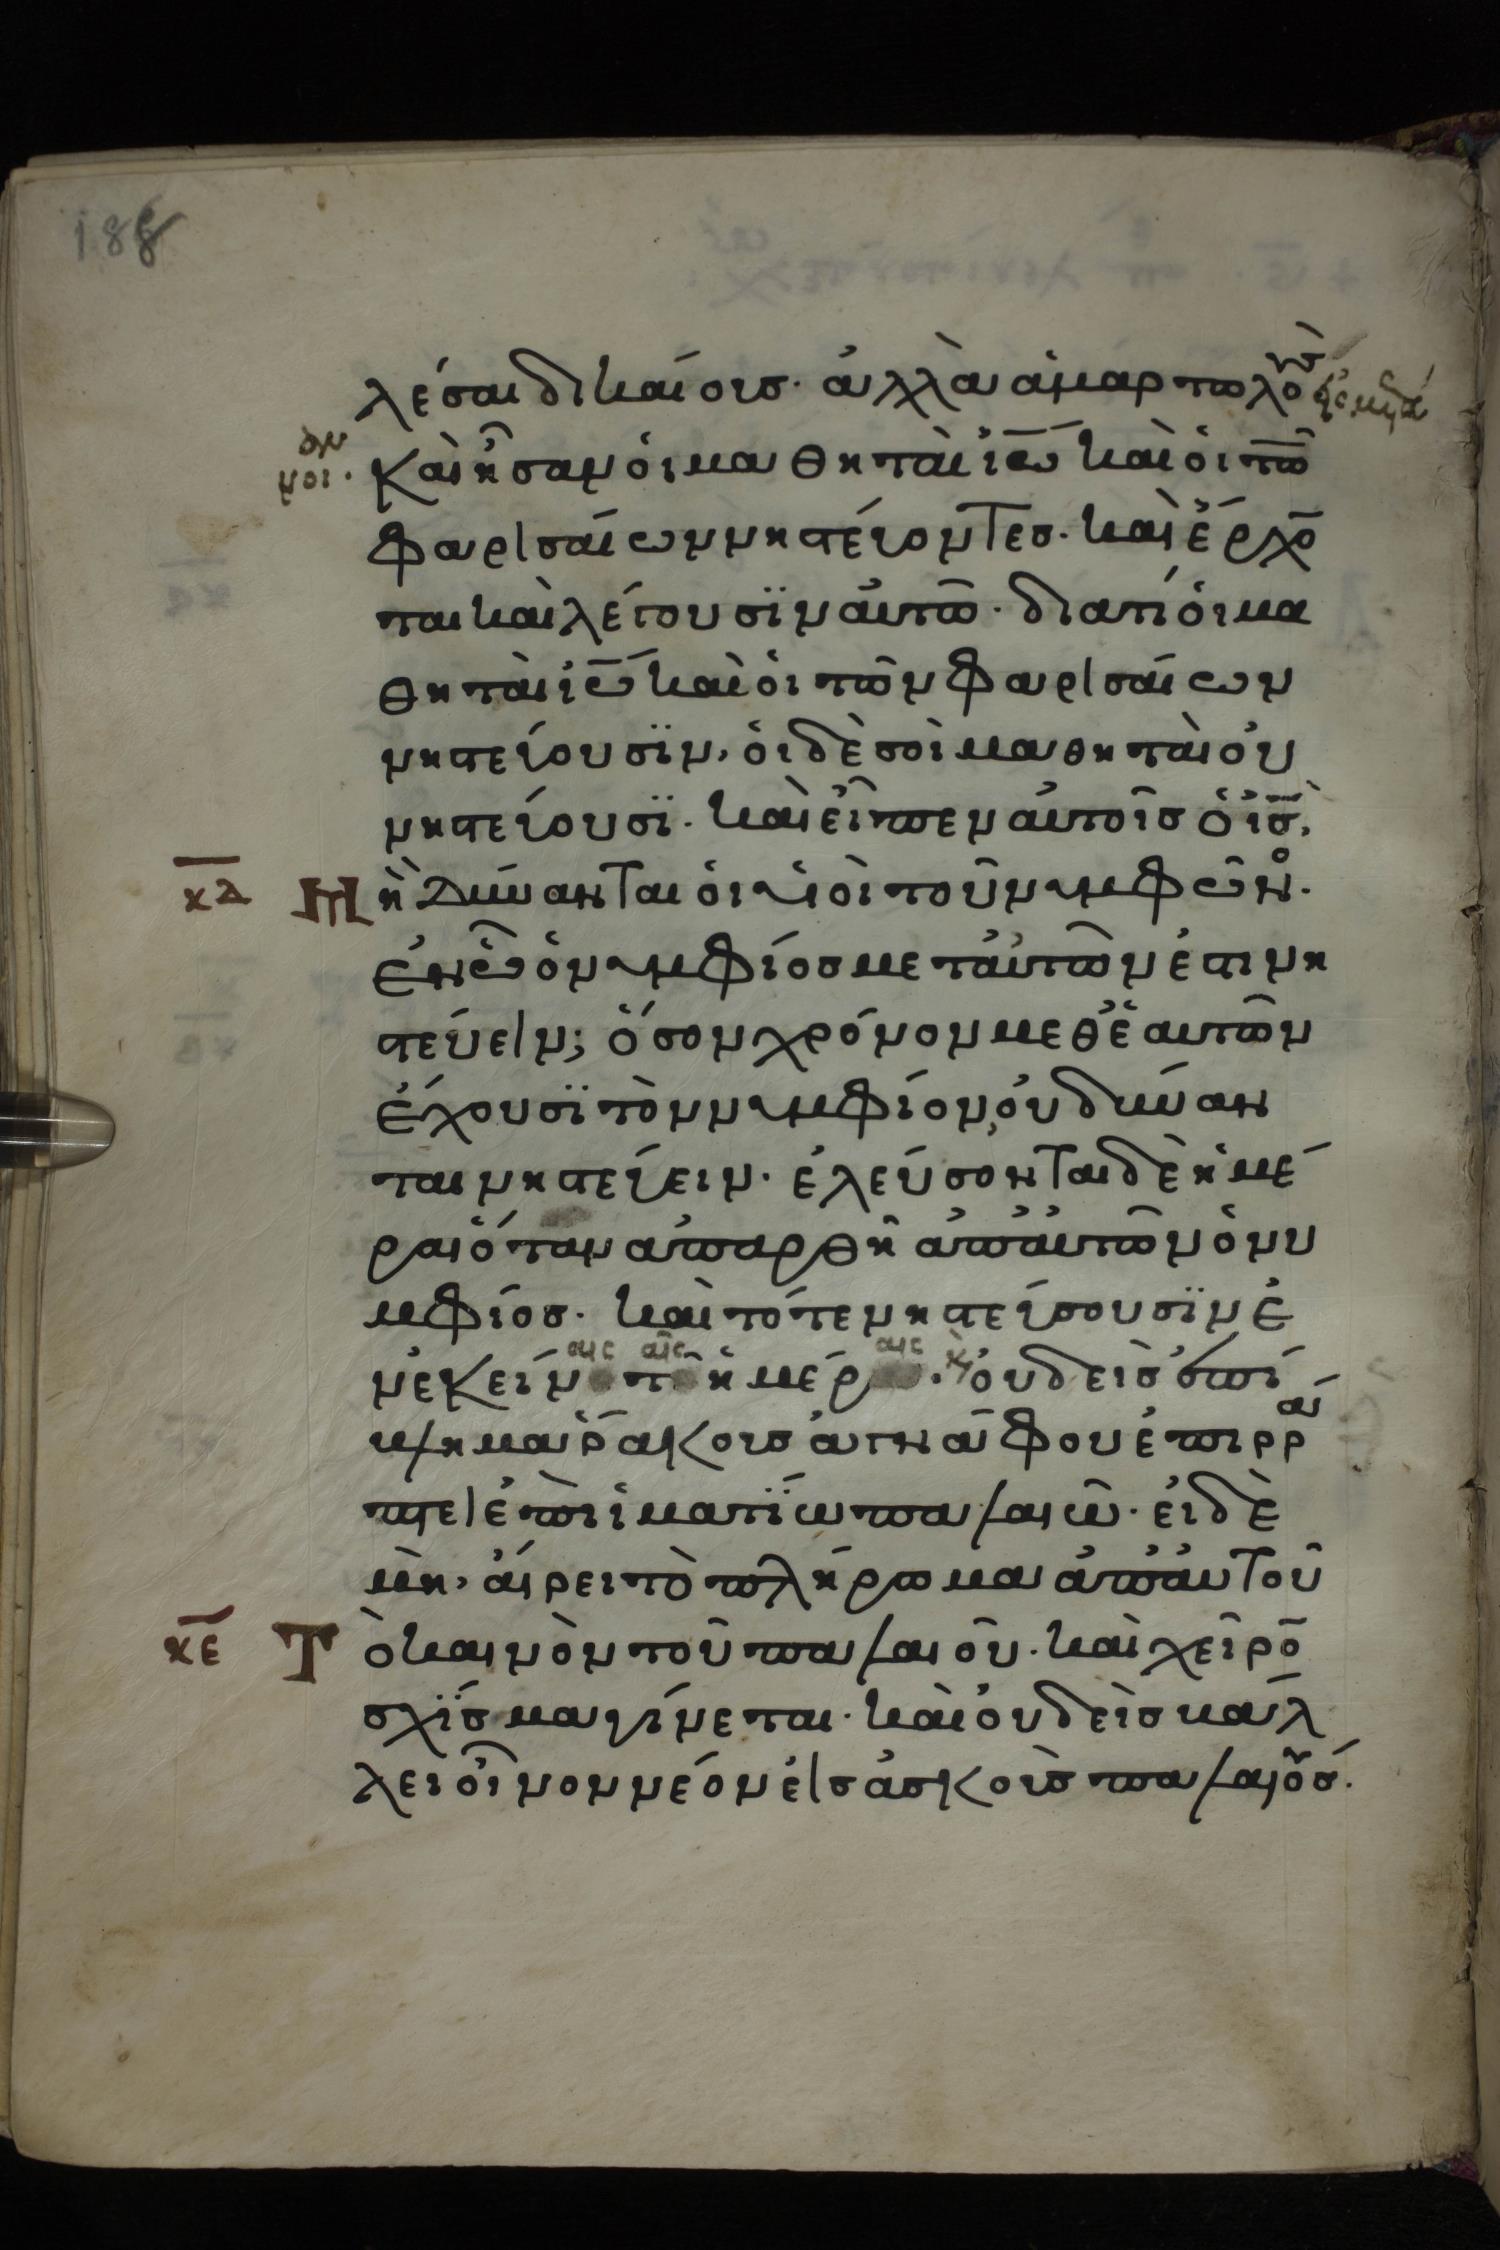 188
λέσαι δικαίους· ἀλλὰ ἁμαρτωλοὺς
Καὶ ἦσαν οἱ μαθηταὶ ἰω̅ καὶ οἱ τῶ
φαρισαίων νηστεύοντες· καὶ ἔρχο̅
ται καὶ λέγουσϊν αὐτῶ· διατί οἱ μα
θηταὶ ἰω̅ καὶ οἱ τῶν φαρισαίων
νηστεύουσϊν, οἱ δὲ σοὶ μαθηταὶ οὐ
νηστεύουσϊ· καὶ εἶπεν αὐτοῖς ὁ ι̅ς̅,
κ̅δ̅ Μὴ δύνανται οἱ υἱοὶ τοῦ νυμφῶνο·
ἐν ὧ ὁ νυμφίος μετ' αὐτῶν ἐστι νη
στεύειν; ὅσον χρόνον μεθ' ἑαυτῶν
ἔχουσϊ τὸν νυμφίον, οὐ δύναν
ται νηστεύειν· ἐλεύσονται δὲ ἡμέ
ραι ὅταν απαρθῆ ἀπ' αὐτῶν ὁ νυ
μφίος· καὶ τότε νηστεύσουσϊν ἐ
ν ἐκείναις ταῖς ἡμέραις· κ οὐδεὶς ἐπί
ϊνμα ῥάκους ἀγνάφου ἐπιρρά
πτει ἐπὶ ἱματίω παλαιῶ· εἰ δὲ
μὴ, αἴρει τὸ πλήρωμα ἀπ' αὐτοῦ
κ̅ε̅ Τὸ καινὸν τοῦ παλαιοῦ· καὶ χεῖρο̅
σχϊσμα γίνεται· καὶ οὐδεὶς βάλ
λει οἶνον νέον εἰς ἀσκοὺς παλαιούς·